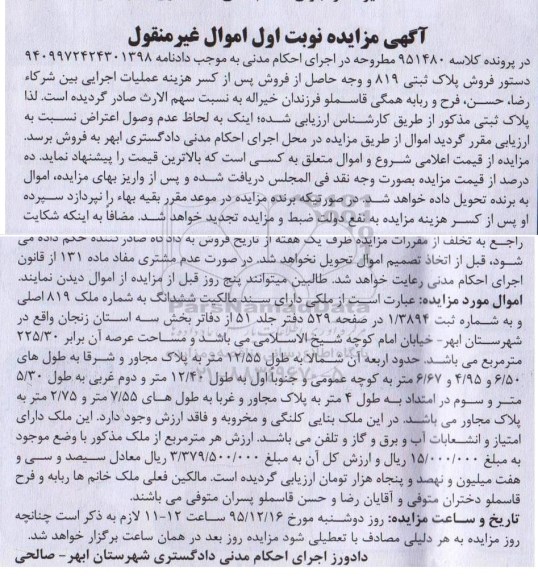 آگهی مزایده نوبت اول اموال غیرمنقول
در پرونده کلاسه ۹۵۱۴۸۰ مطروحه در اجرای احکام مدنی به موجب دادنامه ۹۴۰۹۹۷۲۴۲۴۳۰۱۳۹۸
دستور فروش پلاک ثبتی ۸۱۹ و وجه حاصل از فروش پس از کسر هزینه عملیات اجرایی بین شرکاء
رضا، حسن، فرح و ربابه همگی قاسملو فرزندان خیراله به نسبت سهم الارث صادر گردیده است. لذا
پلاک ثبتی مذکور از طریق کارشناس ارزیابی شده؛ اینک به لحاظ عدم وصول اعتراض نسبت به
ارزیابی مقرر گردید اموال از طریق مزایده در محل اجرای احکام مدنی دادگستری ابهر به فروش برسد.
مزایده از قیمت اعلامی شروع و اموال متعلق به کسی است که بالاترین قیمت را پیشنهاد نماید. ده
درصد از قیمت مزایده بصورت وجه نقد فی المجلس دریافت شده و پس از واریز بهای مزایده، اموال
به برنده تحویل داده خواهد شد. در صورتیکه برنده مزایده در موعد مقرر بقیه بهاء را نپردازد سپرده
او پس از کسر هزینه مزایده به نفع دولت ضبط و مزایده تجدید خواهد شد. مضافاً به اینکه شکایت
راجع به تخلف از مقررات مزایده ظرف یک هفته از تاریخ فروش به دادگاه صادر کننده حکم داده می
شود، قبل از اتخاذ تصمیم اموال تحویل نخواهد شد. در صورت عدم مشتری مفاد ماده ۱۳۱ از قانون
اجرای احکام مدنی رعایت خواهد شد. طالبین میتوانند پنج روز قبل از مزایده از اموال دیدن نمایند.
اموال مورد مزایده: عبارت است از ملکی دارای سند مالکیت ششدانگ به شماره ملک ۸۱۹ اصلی
و به شماره ثبت ۱/۳۸۹۴ در صفحه ۵۲۹ دفتر جلد ۵۱ از دفاتر بخش سه استان زنجان واقع در
شهرستان ابهر- خیابان امام کوچه شیخ الاسلامی می باشد و مساحت عرصه آن برابر ۲۲۵/۳۰
مترمربع می باشد. حدود اربعه آن شمالا به طول ۱۲/۵۵ متر به پلاک مجاور و شرقا به طول های
۶/۵۰ و ۴/۹۵ و ۶/۶۷ متر به کوچه عمومی و جنوبا اول به طول ۱۲/۴۰ متر و دوم غربی به طول ۵/۳۰
متر و سوم در امتداد به طول ۴ متر به پلاک مجاور و غربا به طول های ۷/۵۵ متر و ۲/۷۵ متر به
پلاک مجاور می باشد. در این ملک بنایی کلنگی و مخروبه و فاقد ارزش وجود دارد. این ملک دارای
امتیاز و انشعابات آب و برق و گاز و تلفن می باشد. ارزش هر مترمربع از ملک مذکور با وضع موجود
به مبلغ ۱۵/۰۰۰/۰۰۰ ریال و ارزش کل آن به مبلغ ۳/۳۷۹/۵۰۰/۰۰۰ ریال معادل سیصد و سی و
هفت میلیون و نهصد و پنجاه هزار تومان ارزیابی گردیده است. مالکین فعلی ملک خانم ها ربابه و فرح
قاسملو دختران متوفی و آقایان رضا و حسن قاسملو پسران متوفی می باشند.
تاریخ و ساعت مزایده: روز دوشنبه مورخ ۹۵/۱۲/۱۶ ساعت ۱۲-۱۱ لازم به ذکر است چنانچه
روز مزایده به هر دلیلی مصادف با تعطیلی شود مزایده روز بعد در همان ساعت برگزار خواهد شد.
دادورز اجرای احکام مدنی دادگستری شهرستان ابهر- صالحی